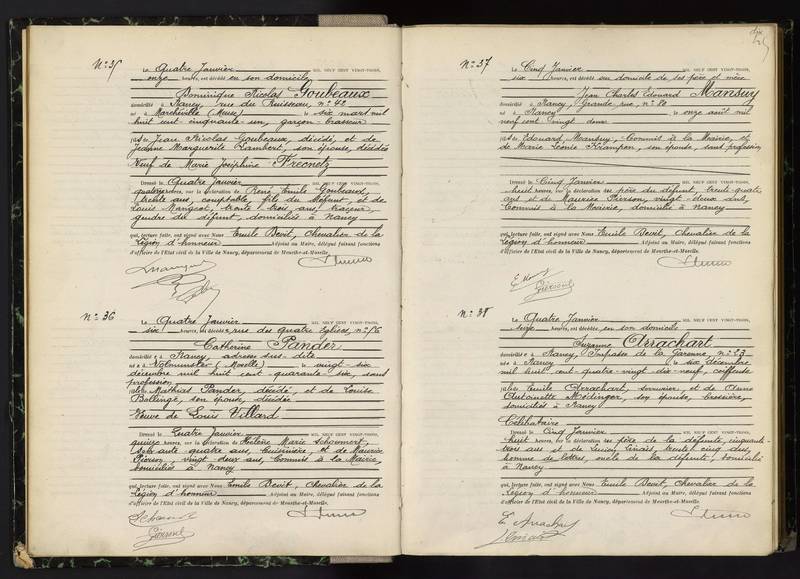 N° 35
Le Quatre Janvier MIL NEUF CENT VINGT-TROIS,
onze heures, est décédé en son domicile
Dominique Nicolas Goubeaux
domicilié à Nancy, rue du Ruisseau, n° 42
né à Marchéville (Meuse) le six mars mil
huit cent cinquante-un, garçon-brasseur
fils de Jean Nicolas Goubeaux, décédé, et de
Jeanne Marguerite Lambert, son épouse, décédée
Veuf de Marie Joséphine Frecnetz
Dressé le Quatre Janvier MIL NEUF CENT VINGT-TROIS,
quatorze heures, sur la déclaration de René Emile Goubeaux,
trente ans, comptable, fils du défunt, et de
Louis Mangeot, trente trois ans, traceur,
gendre du défunt, domiciliés à Nancy
qui, lecture faite, ont signé avec Nous Emile Devit, Chevalier de la
Légion d'honneur Adjoint au Maire, délégué faisant fonctions
d'officier de l'Etat civil de la Ville de Nancy, département de Meurthe-et-Moselle.
N° 36
Le Quatre Janvier MIL NEUF CENT VINGT-TROIS,
six heures, est décédée rue des quatre Eglises, n° 56
Catherine Pander
domiciliée à Nancy, adresse sus-dite
née à Volmunster (Moselle) le vingt-six
décembre mil huit cent quarante-six, sans
profession
fille de Mathias Pander, décédé, et de Louise
Bellinge, son épouse, décédée
Veuve de Louis Villard
Dressé le Quatre Janvier MIL NEUF CENT VINGT-TROIS,
quinze heures, sur la déclaration de Hélène Marie
soixante quatre ans, Cuisinière, et de Maurice
Pierson vingt deux ans, Commis à la Mairie,
domiciliés à Nancy
qui, lecture faite, ont signé avec Nous Emile Devit, Chevalier de la
Légion d'honneur Adjoint au Maire, délégué faisant fonctions
d'officier de l'Etat civil de la Ville de Nancy, département de Meurthe-et-Moselle.
dix
N° 37
Le Cinq Janvier MIL NEUF CENT VINGT-TROIS,
six heures, est décédé au domicile de ses père et mère
Jean Charles Edouard Mansuy
domicilié à Nancy, Grande rue, n° 80
né à Nancy le onze août mil
neuf cent vingt deux
fils de Edouard Mansuy, Commis à la Mairie, et
de Marie Léonie Krampen, son épouse, sans profession
Dressé le Cinq Janvier MIL NEUF CENT VINGT-TROIS,
huit heures, sur la déclaration du père du défunt, trente quatre
ans et de Maurice Pierson, vingt-deux ans,
Commis à la Mairie, domiciliés à Nancy
qui, lecture faite, ont signé avec Nous Emile Devit, Chevalier de la
Légion d'honneur Adjoint au Maire, délégué faisant fonctions
d'officier de l'Etat civil de la Ville de Nancy, département de Meurthe-et-Moselle.
N° 38
Le Quatre Janvier MIL NEUF CENT VINGT-TROIS,
seize heures, est décédée en son domicile
Suzanne Arrachart
domiciliée à Nancy, Impasse de la Garenne, n° 23
née à Nancy le six décembre
mil huit cent quatre-vingt dix neuf, coiffeuse
fille de Emile Arrachart, serrurier, et de Anne
Antoinette Médinger, son épouse, brossière,
domiciliés à Nancy
Célibataire
Dressé le Cinq Janvier MIL NEUF CENT VINGT-TROIS,
huit heures, sur la déclaration du père de la défunte, cinquante
trois ans et de Lucien Linais, trente cinq ans,
homme de lettres, oncle de la défunte, domiciliés
à Nancy
qui, lecture faite, ont signé avec Nous Emile Devit, Chevalier de la
Légion d'honneur Adjoint au Maire, délégué faisant fonctions
d'officier de l'Etat civil de la Ville de Nancy, département de Meurthe-et-Moselle.
E. Arrachart